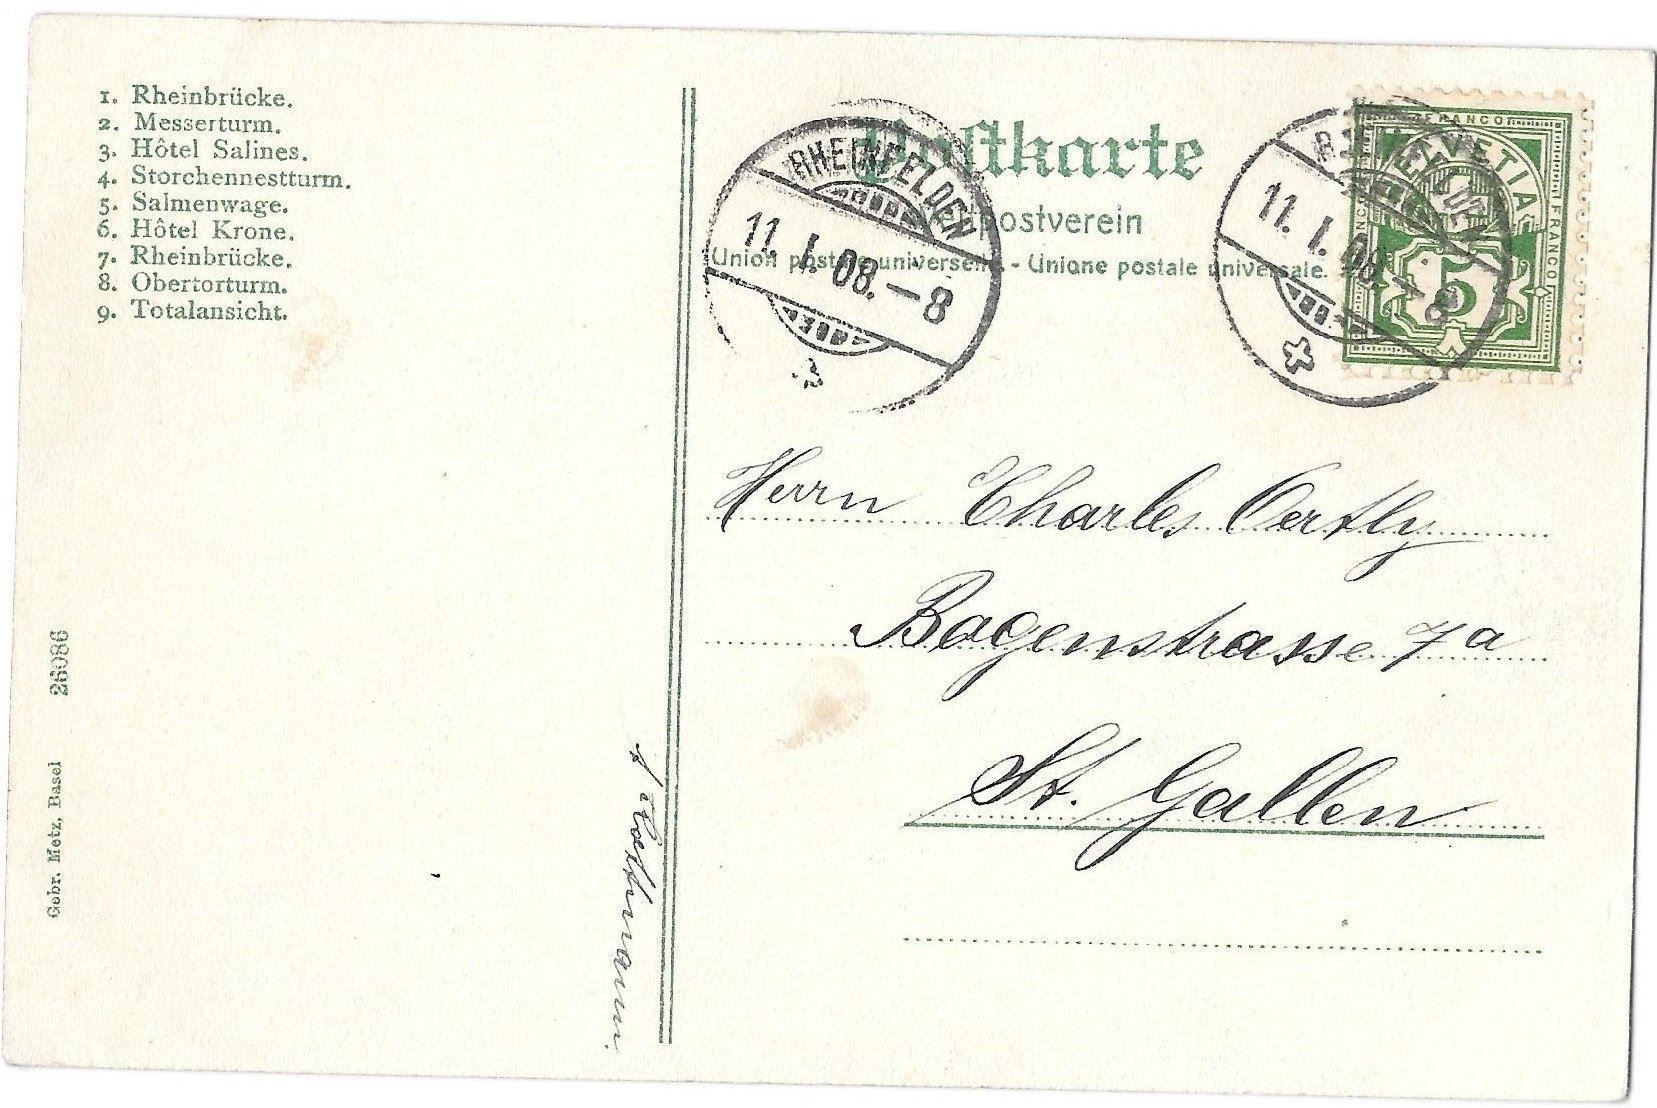 1. Rheinbrücke.
2. Messerturm.
3. Hôtel Salines.
4. Storchennestturm.
5. Salmenwage.
6. Hôtel Krone.
7. Rheinbrücke.
8. Obertorturm.
9. Totalansicht.
Gebr. Metz, Basel 26086
Rottmann.
Postkarte
postverein
Union postale universelle. - Unione postale universale.
RHEINFELDEN
11. I. 08. - 8
RHEINFELDEN
11. I. 08. - 8
FRANCO
HELVETIA
FRANCO
FRANCO
5
Herrn Charles Oertly
Bogenstrasse 7a
St. Gallen